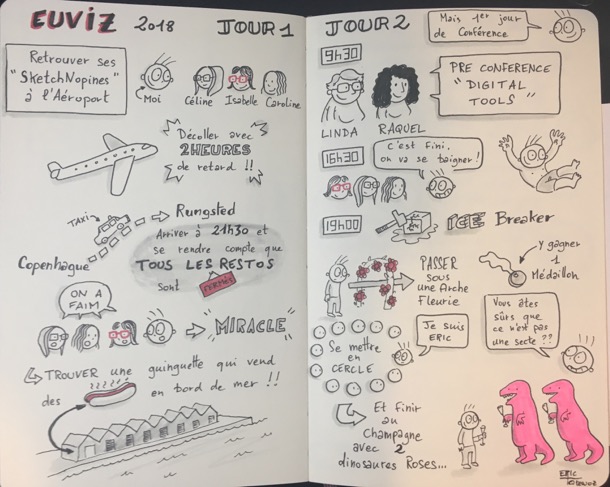 EUVIZ 2018 JOUR 1
Retrouver ses
"SketchNopines"
à l'Aéroport
Moi
Céline
Isabelle
Caroline
Décoller avec
2HEURES
de retard !!
TAXI
Rungsted
Copenhague
Arriver à 21h30 et
se rendre compte que
TOUS LES RESTOS
sont FERMÉS
ON A
FAIM
MIRACLE
TROUVER une guinguette qui vend
des en bord de mer !!
JOUR 2
Mais 1er jour
de Conférence
9h30
PRE CONFERENCE
"DIGITAL
TOOLS"
LINDA
RAQUEL
16h30
C'est fini,
on va se baigner !
19h00
ICE Breaker
PASSER
sous
une Arche
Fleurie
y gagner
1
Médaillon
Se mettre
en
CERCLE
Je suis
ERIC
Vous êtes
sûrs que
ce n'est pas
une secte ??
Et Finir
au
Champagne
avec 2
dinosaures Roses...
ERIC